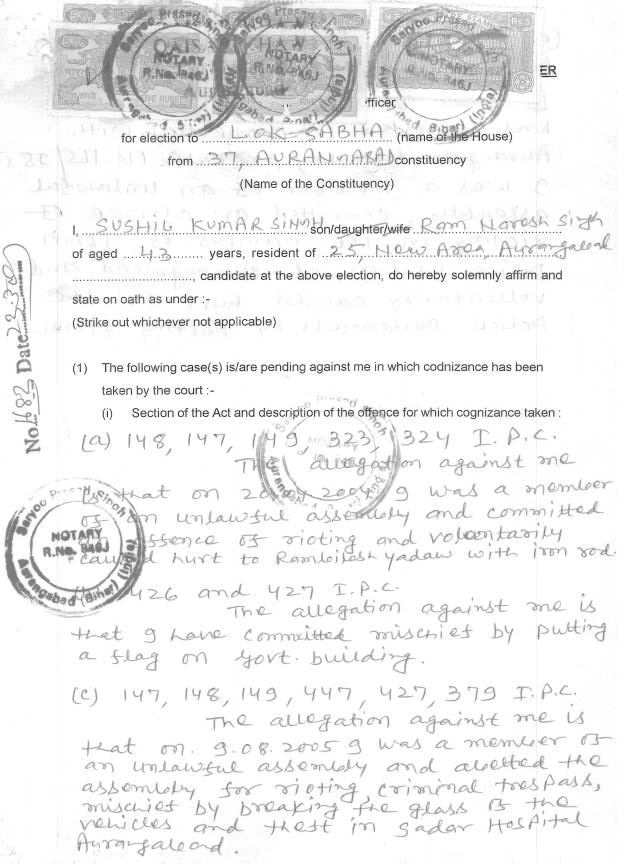 Saryoo Prasad Singh
NOTARY
R.No. 846J
Aurangabad Bihar (India)
ER
fficer
for election to LOK-SABHA (name of the House)
from 37, AURANGABAD constituency
(Name of the Constituency)
I, SUSHIL KUMAR SINGH son/daughter/wife Ram Naresh Singh
of aged 43 years, resident of 25, New Area, Aurangabad
, candidate at the above election, do hereby solemnly affirm and
state on oath as under :-
(Strike out whichever not applicable)
No. 1682 Date
(1) The following case(s) is/are pending against me in which codnizance has been
taken by the court :-
(i) Section of the Act and description of the offence for which cognizance taken :
(a) 148, 147, 149, 323, 324 I.P.C.
The allegation against me
is that on 2004 I was a member
of an unlawful assembly and committed
offence of rioting and voluntarily
caused hurt to Rambilash Yadaw with iron rod.
426 and 427 I.P.C.
The allegation against me is
that I have committed mischief by putting
a flag on Govt. building.
(C) 147, 148, 149, 447, 427, 379 I.P.C.
The allegation against me is
that on. 9.08.2005 I was a member of
an unlawful assembly and abetted the
assembly for rioting, criminal trespass,
mischief by breaking the glass of the
vehicles and theft in Sadar Hospital
Aurangabad.
Saryoo Prasad Singh
NOTARY
R.No. 846J
Aurangabad (Bihar) (India)